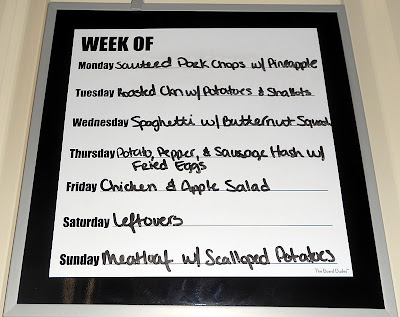 WEEK OF
Monday Sauteed Pork Chops w/ Pineapple
Tuesday Roasted Ckn w/ Potatoes & Shallots
Wednesday Spaghetti w/ Butternut Squash
Thursday Potato, Pepper, & Sausage Hash w/
Fried Eggs
Friday Chicken & Apple Salad
Saturday Leftovers
Sunday Meatloaf w/ Scalloped Potatoes
The Board Dudes